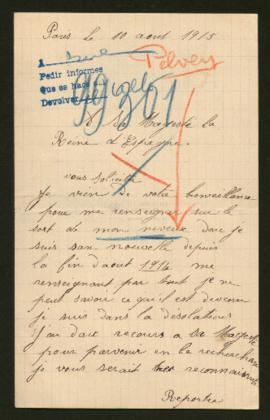 Paris le 10 aout 1915
Pelvey
A
Pedir informes
Que se haga
Devolver
A Sa Majesté la
Reine d'Espagne.
vous solicite
Je vien de votre bienveillance
pour me renseigner sur le
sort de mon neveux donc je
suis san nouvelle depuis
la fin d'aout 1914 me
renseignant par tout je ne
peut savoir ce qu'il est devenu
je suis dans la désolation
j'ai dont recours a sa Majesté
pour parvenir en le recherchan
je vous serait reconnaissante
Reportée